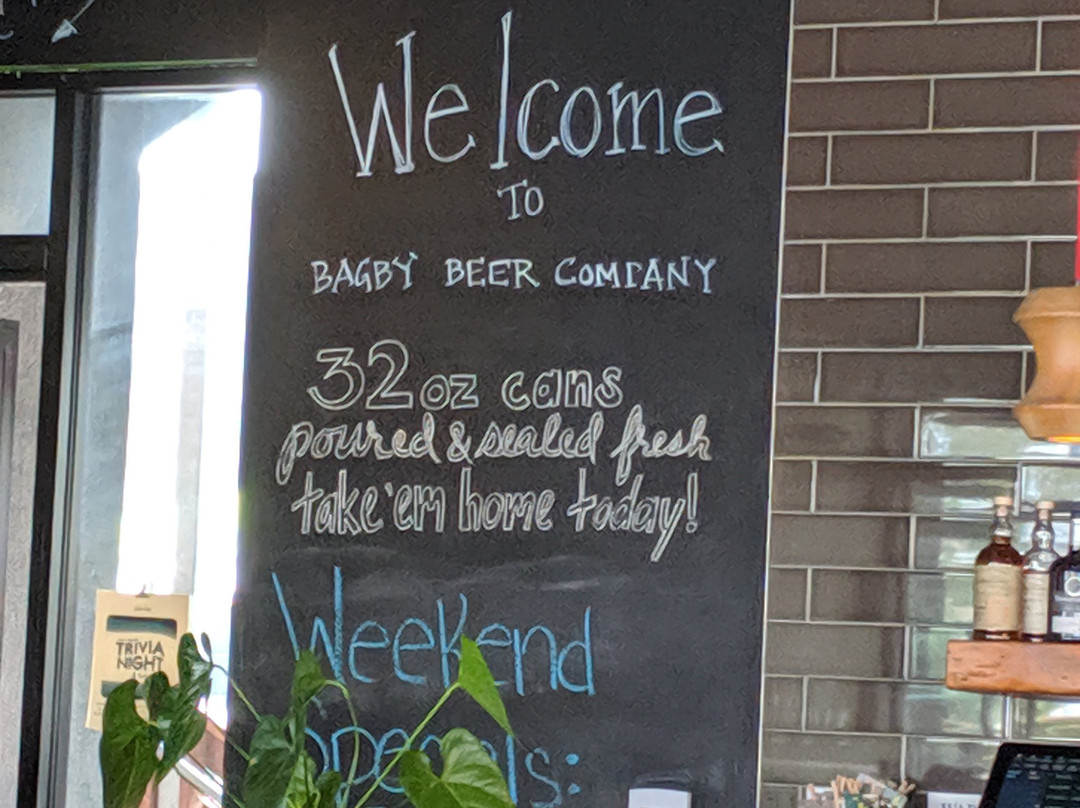 Welcome
TO
BAGBY BEER COMPANY
32oz cans
poured & sealed fresh
take 'em home today!
Weekend
Specials:
TRIVIA
NIGHT